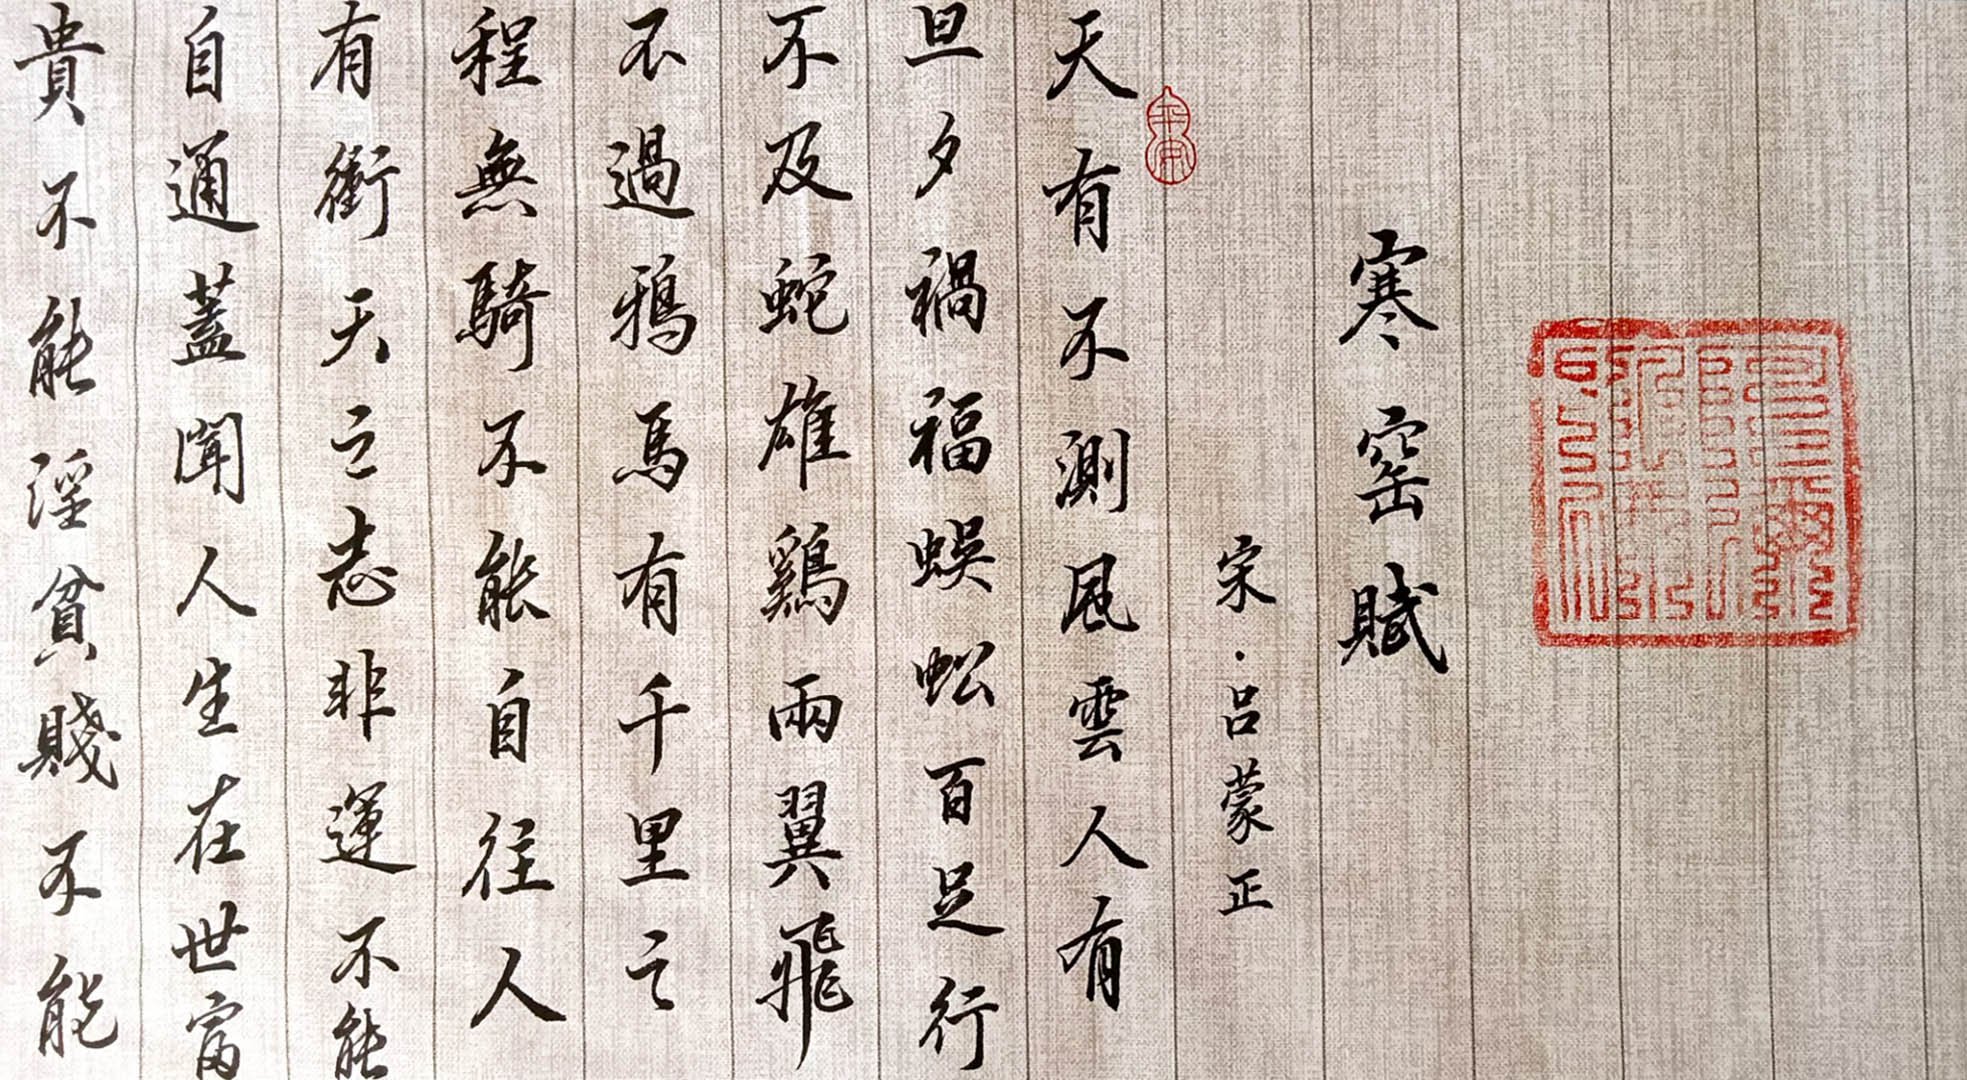 寒窑賦
宋·吕蒙正
平安
天有不測风雲人有
旦夕禍福蜈蚣百足行
不及蛇雄鷄兩翼飛
不過鴉馬有千里之
程無騎不能自往人
有衝天之志非運不能
自通蓋聞人生在世富
貴不能淫貧賤不能